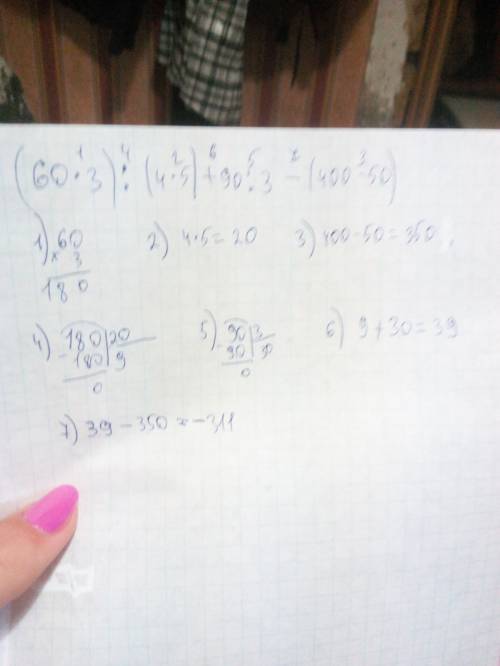 1 4 2 6 5 7 3
(60·3):(4·5)+90:3-(400-50)
1) 60 2) 4·5=20 3) 400-50=350
× 3
180
4) 180 20 5) 90 3 6) 9+30=39
-180 9 -90 30
0 0
7) 39-350=-311